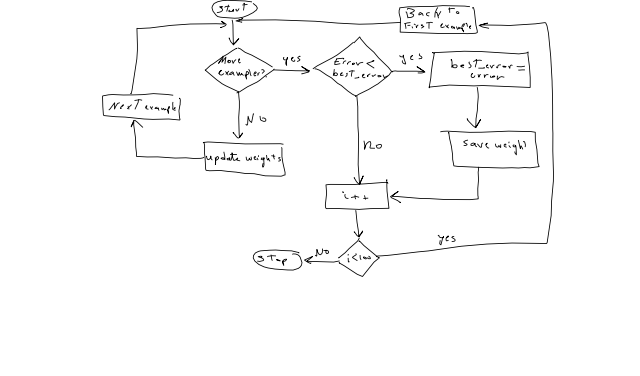 Start
Back To
First example
More
examples?
yes
Error<
best_error
yes
best_error=
error
Next example
No
update weights
no
save weight
i++
yes
i<100
No
Stop